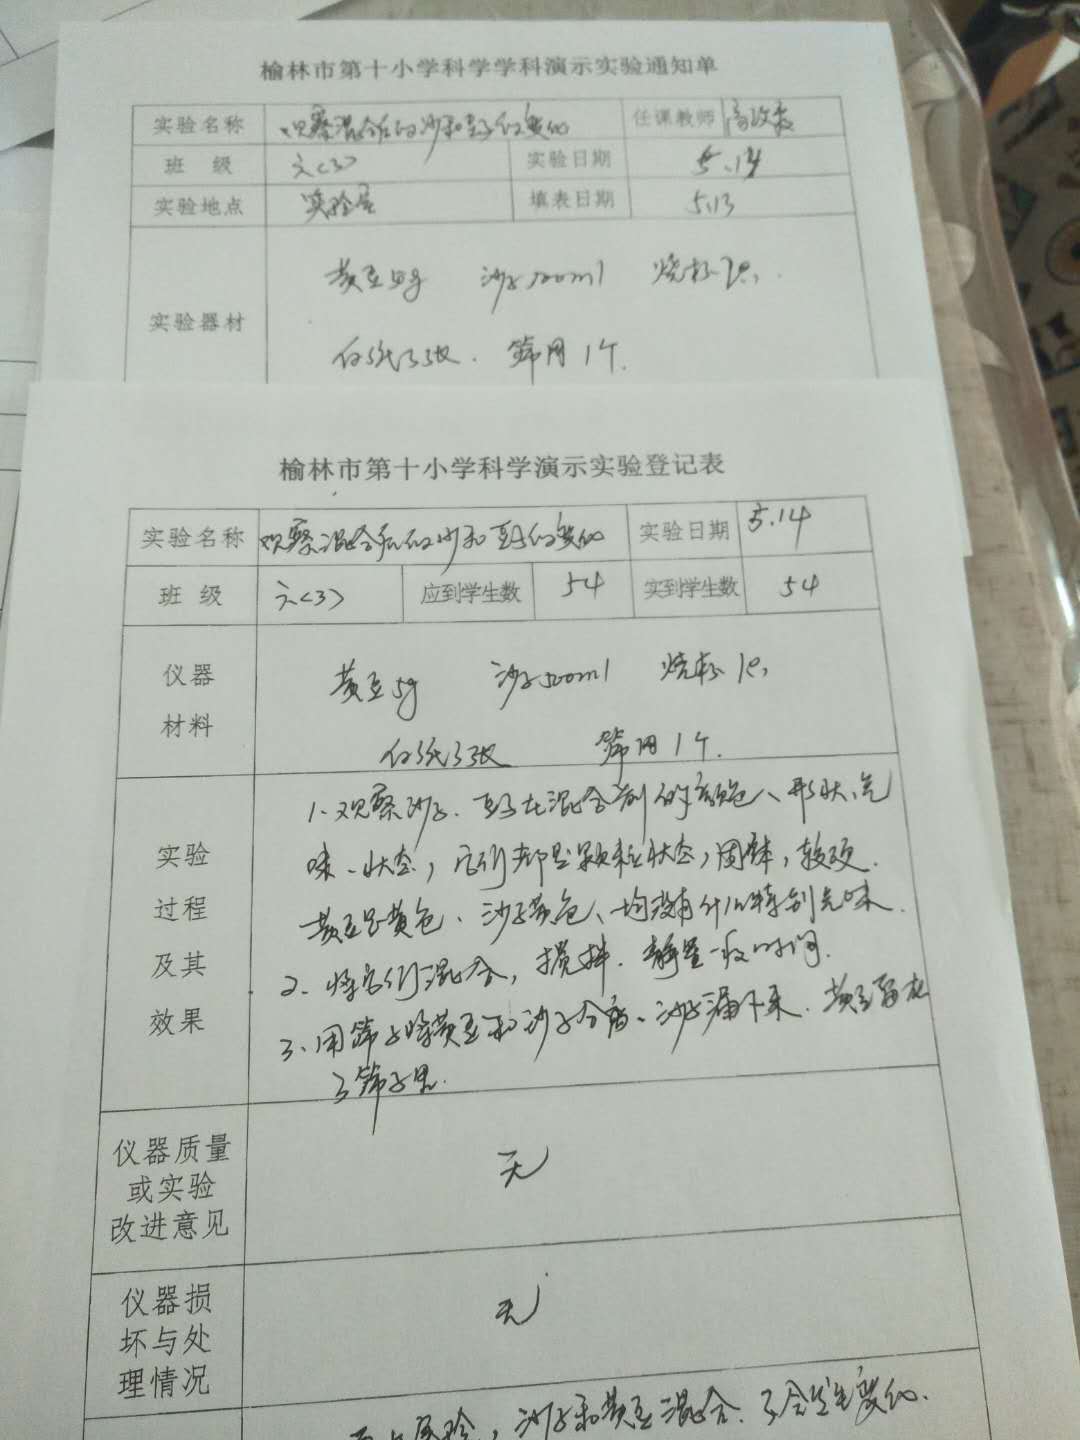 榆林市第十小学科学学科演示实验通知单
实验名称 观察混合后的沙和豆子的变化 任课教师
班 级 六<3> 实验日期 5.14
实验地点 实验室 填表日期 5.13
黄豆 沙子 烧杯1只,
实验器材
白纸3张. 筛网1个.
榆林市第十小学科学演示实验登记表
实验名称 观察混合后的沙和豆子的变化 实验日期 5.14
班 级 六<3> 应到学生数 54 实到学生数 54
仪器
材料
黄豆5g 沙子500ml 烧杯1只,
白纸3张 筛网1个.
实验
过程
及其
效果
1、观察沙子、豆子在混合前的颜色、形状、气
味、状态,它们都是颗粒状态,固体,较硬.
黄豆是黄色、沙子黄色、均没有什么特别气味.
2、将它们混合,搅拌.静置一段时间.
3、用筛子将黄豆和沙子分离、沙子漏下来.黄豆留在
了筛子里.
仪器质量
或实验
改进意见
无
仪器损
坏与处
理情况
无
实验,沙子和黄豆混合.不会发生变化.